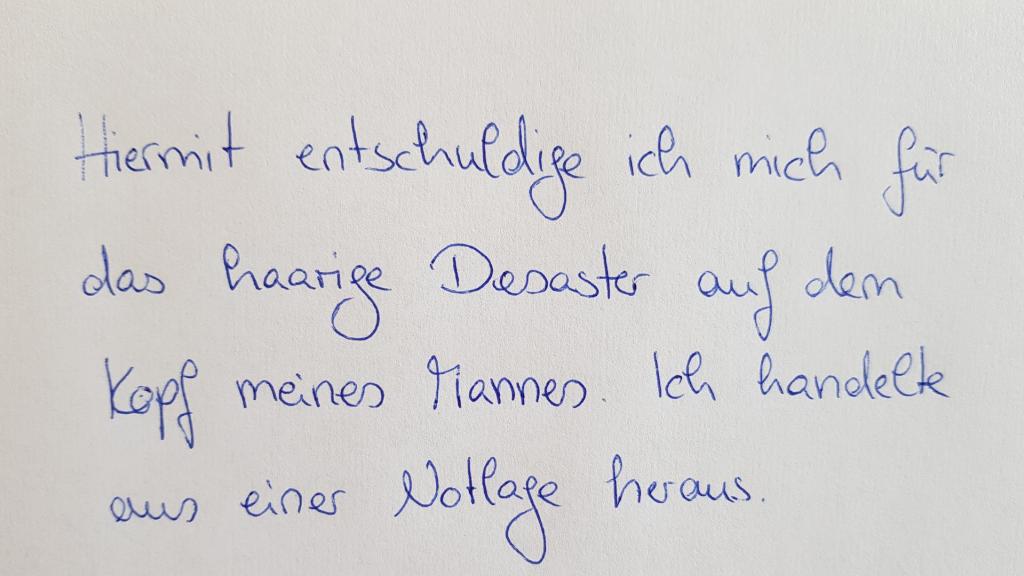 Hiermit entschuldige ich mich für
das haarige Desaster auf dem
Kopf meines Mannes. Ich handelte
aus einer Notlage heraus.